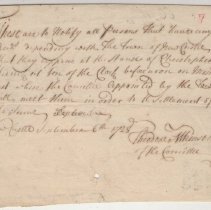 These are to Notify all Persons that have any
depending with the Town of New Castle
that they appear at the House of Christopher
at ten of the Clock before noon on
next where the Comittee appointed by the
will meet them in order to a Settlement of
the Same
Castle September 6th 1728
Theodore Atkinson
of the Comittee